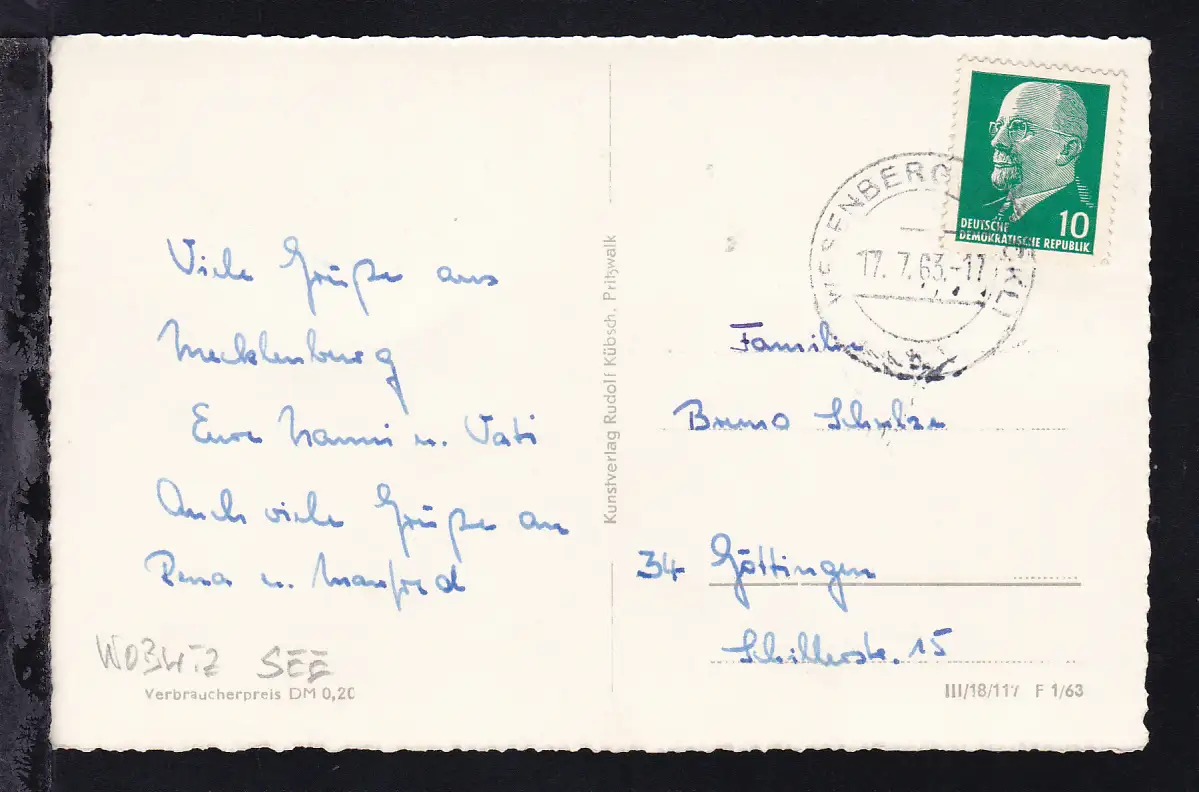 Viele Grüße aus
Mecklenburg
Eure Hanni u. Vati
Auch viele Grüße an
Rena u. Manfred
WOBLITZ SEE
Verbraucherpreis DM 0,20
Kunstverlag Rudolf Kübsch, Pritzwalk
DEUTSCHE
DEMOKRATISCHE REPUBLIK
10
WESENBERG
17.7.63.-17
Familie
Bruno Schulze
34 Göttingen
Schillerstr. 15
III/18/117 F 1/63